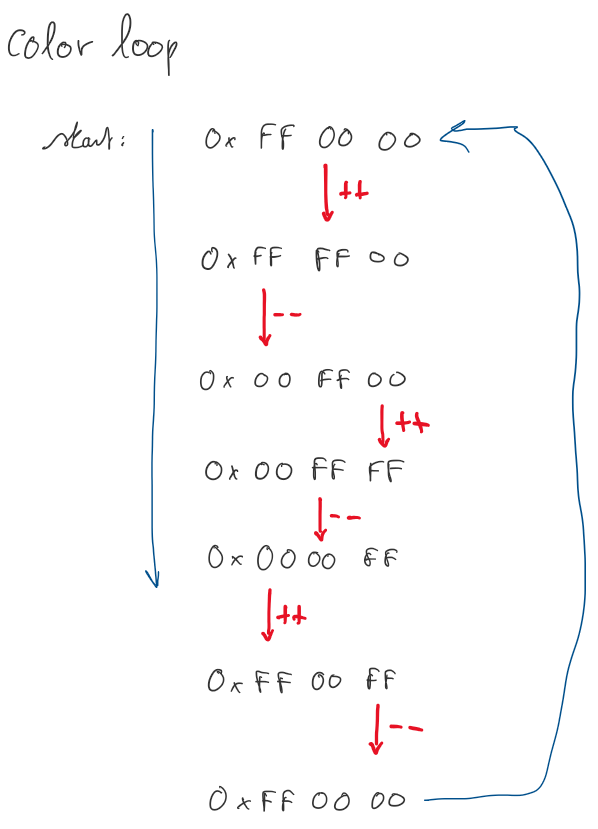 color loop
start: 0x FF 00 00
++
0x FF FF 00
--
0x 00 FF 00
++
0x 00 FF FF
--
0x 00 00 FF
++
0x FF 00 FF
--
0x FF 00 00